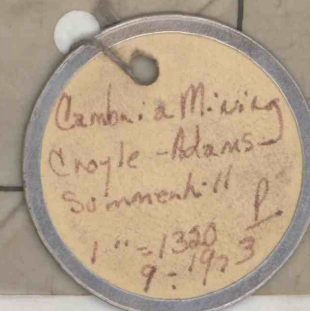 Cambria Mining
Croyle-Adams-
Summerhill
P
1"=1320
9-1973